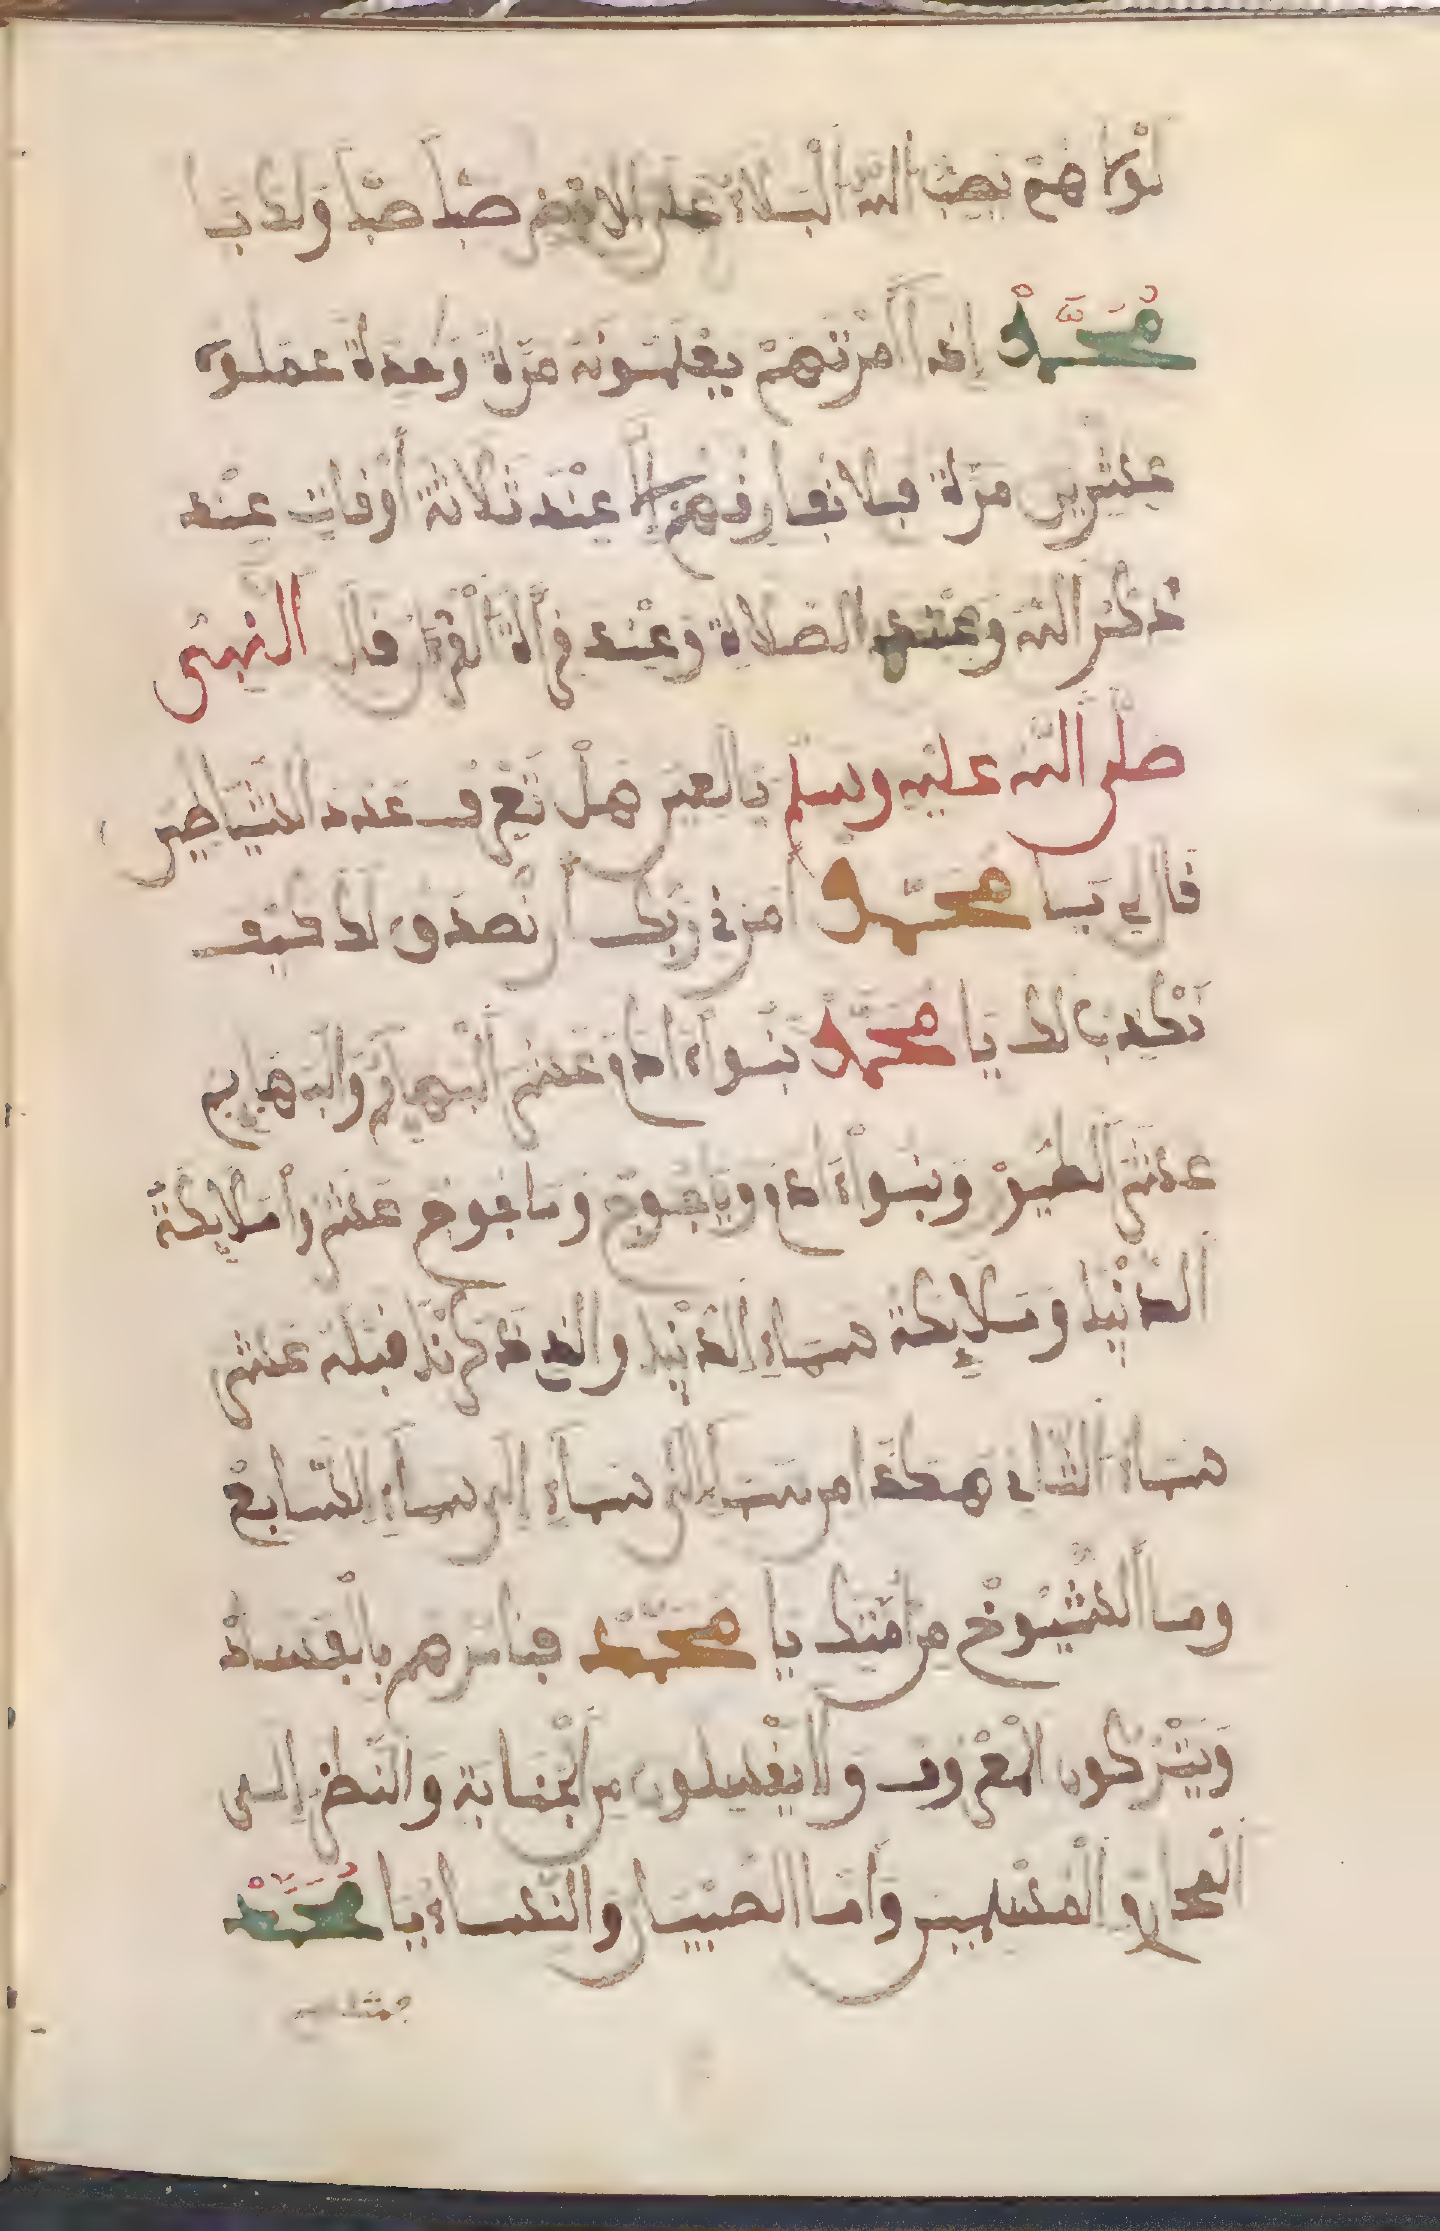 لولا هم يصب الله البلاء على الارض صبا صبا ولاكن يا
مُحَمَّدْ إذا أمرتهم يعلمونه مرة واحدة عملوا
عشرين مرة فلا نفارقهم إلا عند ثلاثة أوقات عند
ذكر الله وعند الصلاة وعند قرأة القرءان قال النبي
صلى الله عليه وسلم يالعين هل تعرف عدد الشياطين
قال لي يا محمد أمرني ربك أن نصدق لك فكيف
نكذب لك يا محمد بنوا ءادم عشر البهايم والبهايم
عشر الطيور وبنوا ءادم وياجوج وماجوج عشر وأملايكة
الدنيا وملايكة سماء الدنيا والذي ذكرنا قبله عشر
سماء الثاني هكذا من سماء إلى سماء إلى سماء السابع
وما الشيوخ من أمتك يا محمد فنامرهم بالفساد
ويتركون المعروف ولا يغسلون من الجنابة والنظر إلى
المحارم المسلمين وأما الصبيان والنساء يا مُحَمَّدْ